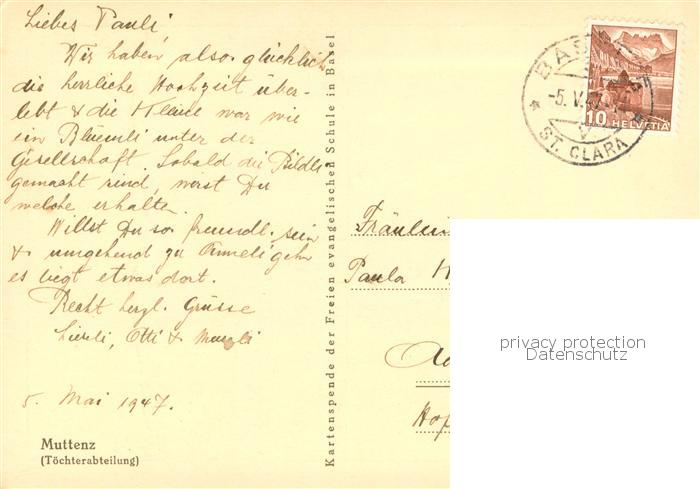 Liebes Pauli,
Wir haben also glücklich
die herrliche Hochzeit über-
lebt & die Kleine war wie
ein Blüemli unter der
Gesellschaft. Sobald die Bildli
gemacht sind, wirst Du
welche erhalten.
Willst Du so freundl. sein
& umgehend zu Anneli gehn
es liegt etwas dort.
Recht herzl. Grüsse
Otti &
5. Mai 1947.
Muttenz
(Töchterabteilung)
Kartenspende der Freien evangelischen Schule in Basel
BAS
-5. V. 47
ST. CLARA
10 HELVETIA
Fräulein
Paula H
Hof
privacy protection
Datenschutz